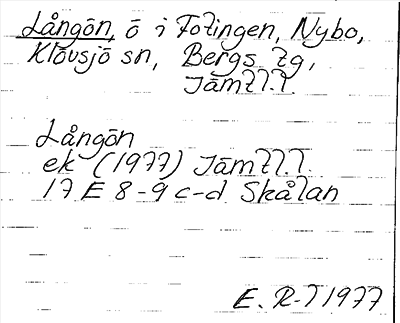 Långön, ö i Fotingen, Nybo,
Klövsjö sn, Bergs tg,
Jämtl.l.
Långön
ek (1977) Jämtl.l.
17 E 8-9 c-d Skålan
E. R-T 1977